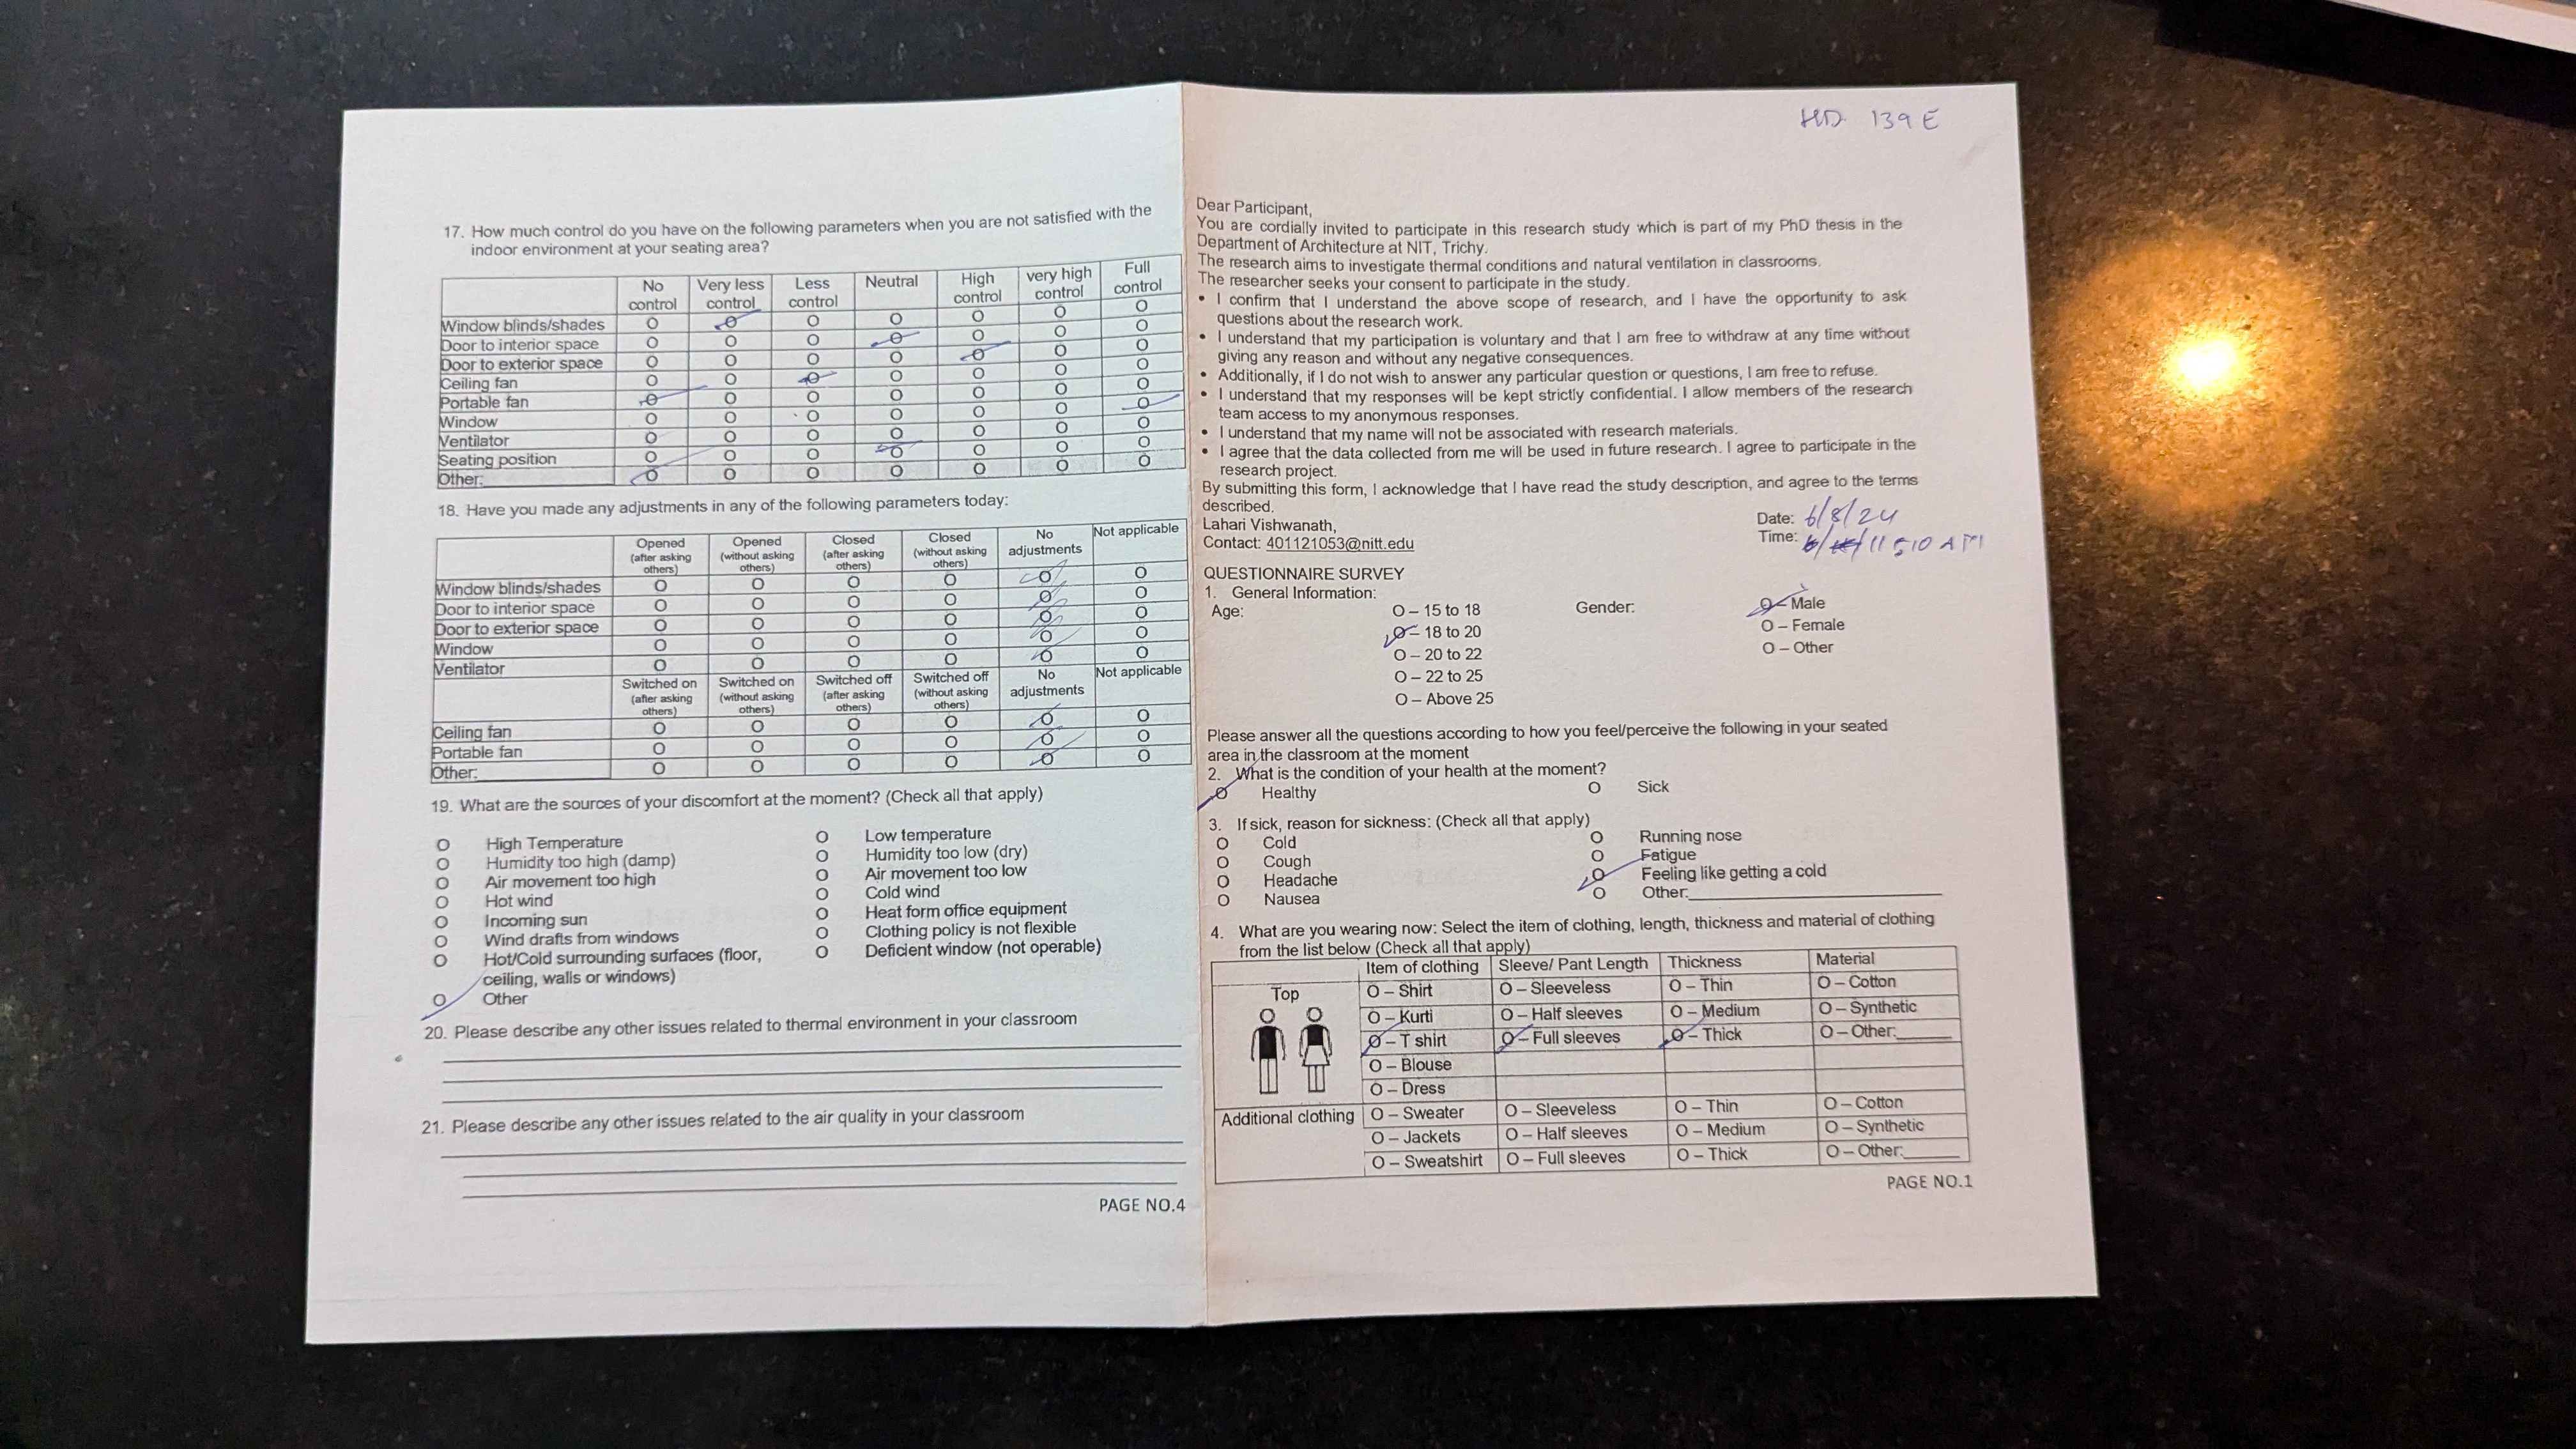 17. How much control do you have on the following parameters when you are not satisfied with the
indoor environment at your seating area?
No control Very less control Less control Neutral High control very high control Full control
Window blinds/shades O O O O O O O
Door to interior space O O O O O O O
Door to exterior space O O O O O O O
Ceiling fan O O O O O O O
Portable fan O O O O O O O
Window O O O O O O O
Ventilator O O O O O O O
Seating position O O O O O O O
Other: O O O O O O O
18. Have you made any adjustments in any of the following parameters today:
Opened (after asking others) Opened (without asking others) Closed (after asking others) Closed (without asking others) No adjustments Not applicable
Window blinds/shades O O O O O O
Door to interior space O O O O O O
Door to exterior space O O O O O O
Window O O O O O O
Ventilator O O O O O O
Switched on (after asking others) Switched on (without asking others) Switched off (after asking others) Switched off (without asking others) No adjustments Not applicable
Ceiling fan O O O O O O
Portable fan O O O O O O
Other: O O O O O O
19. What are the sources of your discomfort at the moment? (Check all that apply)
O High Temperature O Low temperature
O Humidity too high (damp) O Humidity too low (dry)
O Air movement too high O Air movement too low
O Hot wind O Cold wind
O Incoming sun O Heat form office equipment
O Wind drafts from windows O Clothing policy is not flexible
O Hot/Cold surrounding surfaces (floor, O Deficient window (not operable)
ceiling, walls or windows)
O Other
20. Please describe any other issues related to thermal environment in your classroom
21. Please describe any other issues related to the air quality in your classroom
PAGE NO.4
HD 139 E
Dear Participant,
You are cordially invited to participate in this research study which is part of my PhD thesis in the
Department of Architecture at NIT, Trichy.
The research aims to investigate thermal conditions and natural ventilation in classrooms.
The researcher seeks your consent to participate in the study.
• I confirm that I understand the above scope of research, and I have the opportunity to ask
questions about the research work.
• I understand that my participation is voluntary and that I am free to withdraw at any time without
giving any reason and without any negative consequences.
• Additionally, if I do not wish to answer any particular question or questions, I am free to refuse.
• I understand that my responses will be kept strictly confidential. I allow members of the research
team access to my anonymous responses.
• I understand that my name will not be associated with research materials.
• I agree that the data collected from me will be used in future research. I agree to participate in the
research project.
By submitting this form, I acknowledge that I have read the study description, and agree to the terms
described.
Lahari Vishwanath, Date: 6/8/24
Contact: 401121053@nitt.edu Time: 11:10 AM
QUESTIONNAIRE SURVEY
1. General Information:
Age: O – 15 to 18 Gender: O – Male
O – 18 to 20 O – Female
O – 20 to 22 O – Other
O – 22 to 25
O – Above 25
Please answer all the questions according to how you feel/perceive the following in your seated
area in the classroom at the moment
2. What is the condition of your health at the moment?
O Healthy O Sick
3. If sick, reason for sickness: (Check all that apply)
O Cold O Running nose
O Cough O Fatigue
O Headache O Feeling like getting a cold
O Nausea O Other:
4. What are you wearing now: Select the item of clothing, length, thickness and material of clothing
from the list below (Check all that apply)
Item of clothing Sleeve/ Pant Length Thickness Material
Top O – Shirt O – Sleeveless O – Thin O – Cotton
O – Kurti O – Half sleeves O – Medium O – Synthetic
O – T shirt O – Full sleeves O – Thick O – Other:
O – Blouse
O – Dress
Additional clothing O – Sweater O – Sleeveless O – Thin O – Cotton
O – Jackets O – Half sleeves O – Medium O – Synthetic
O – Sweatshirt O – Full sleeves O – Thick O – Other:
PAGE NO.1